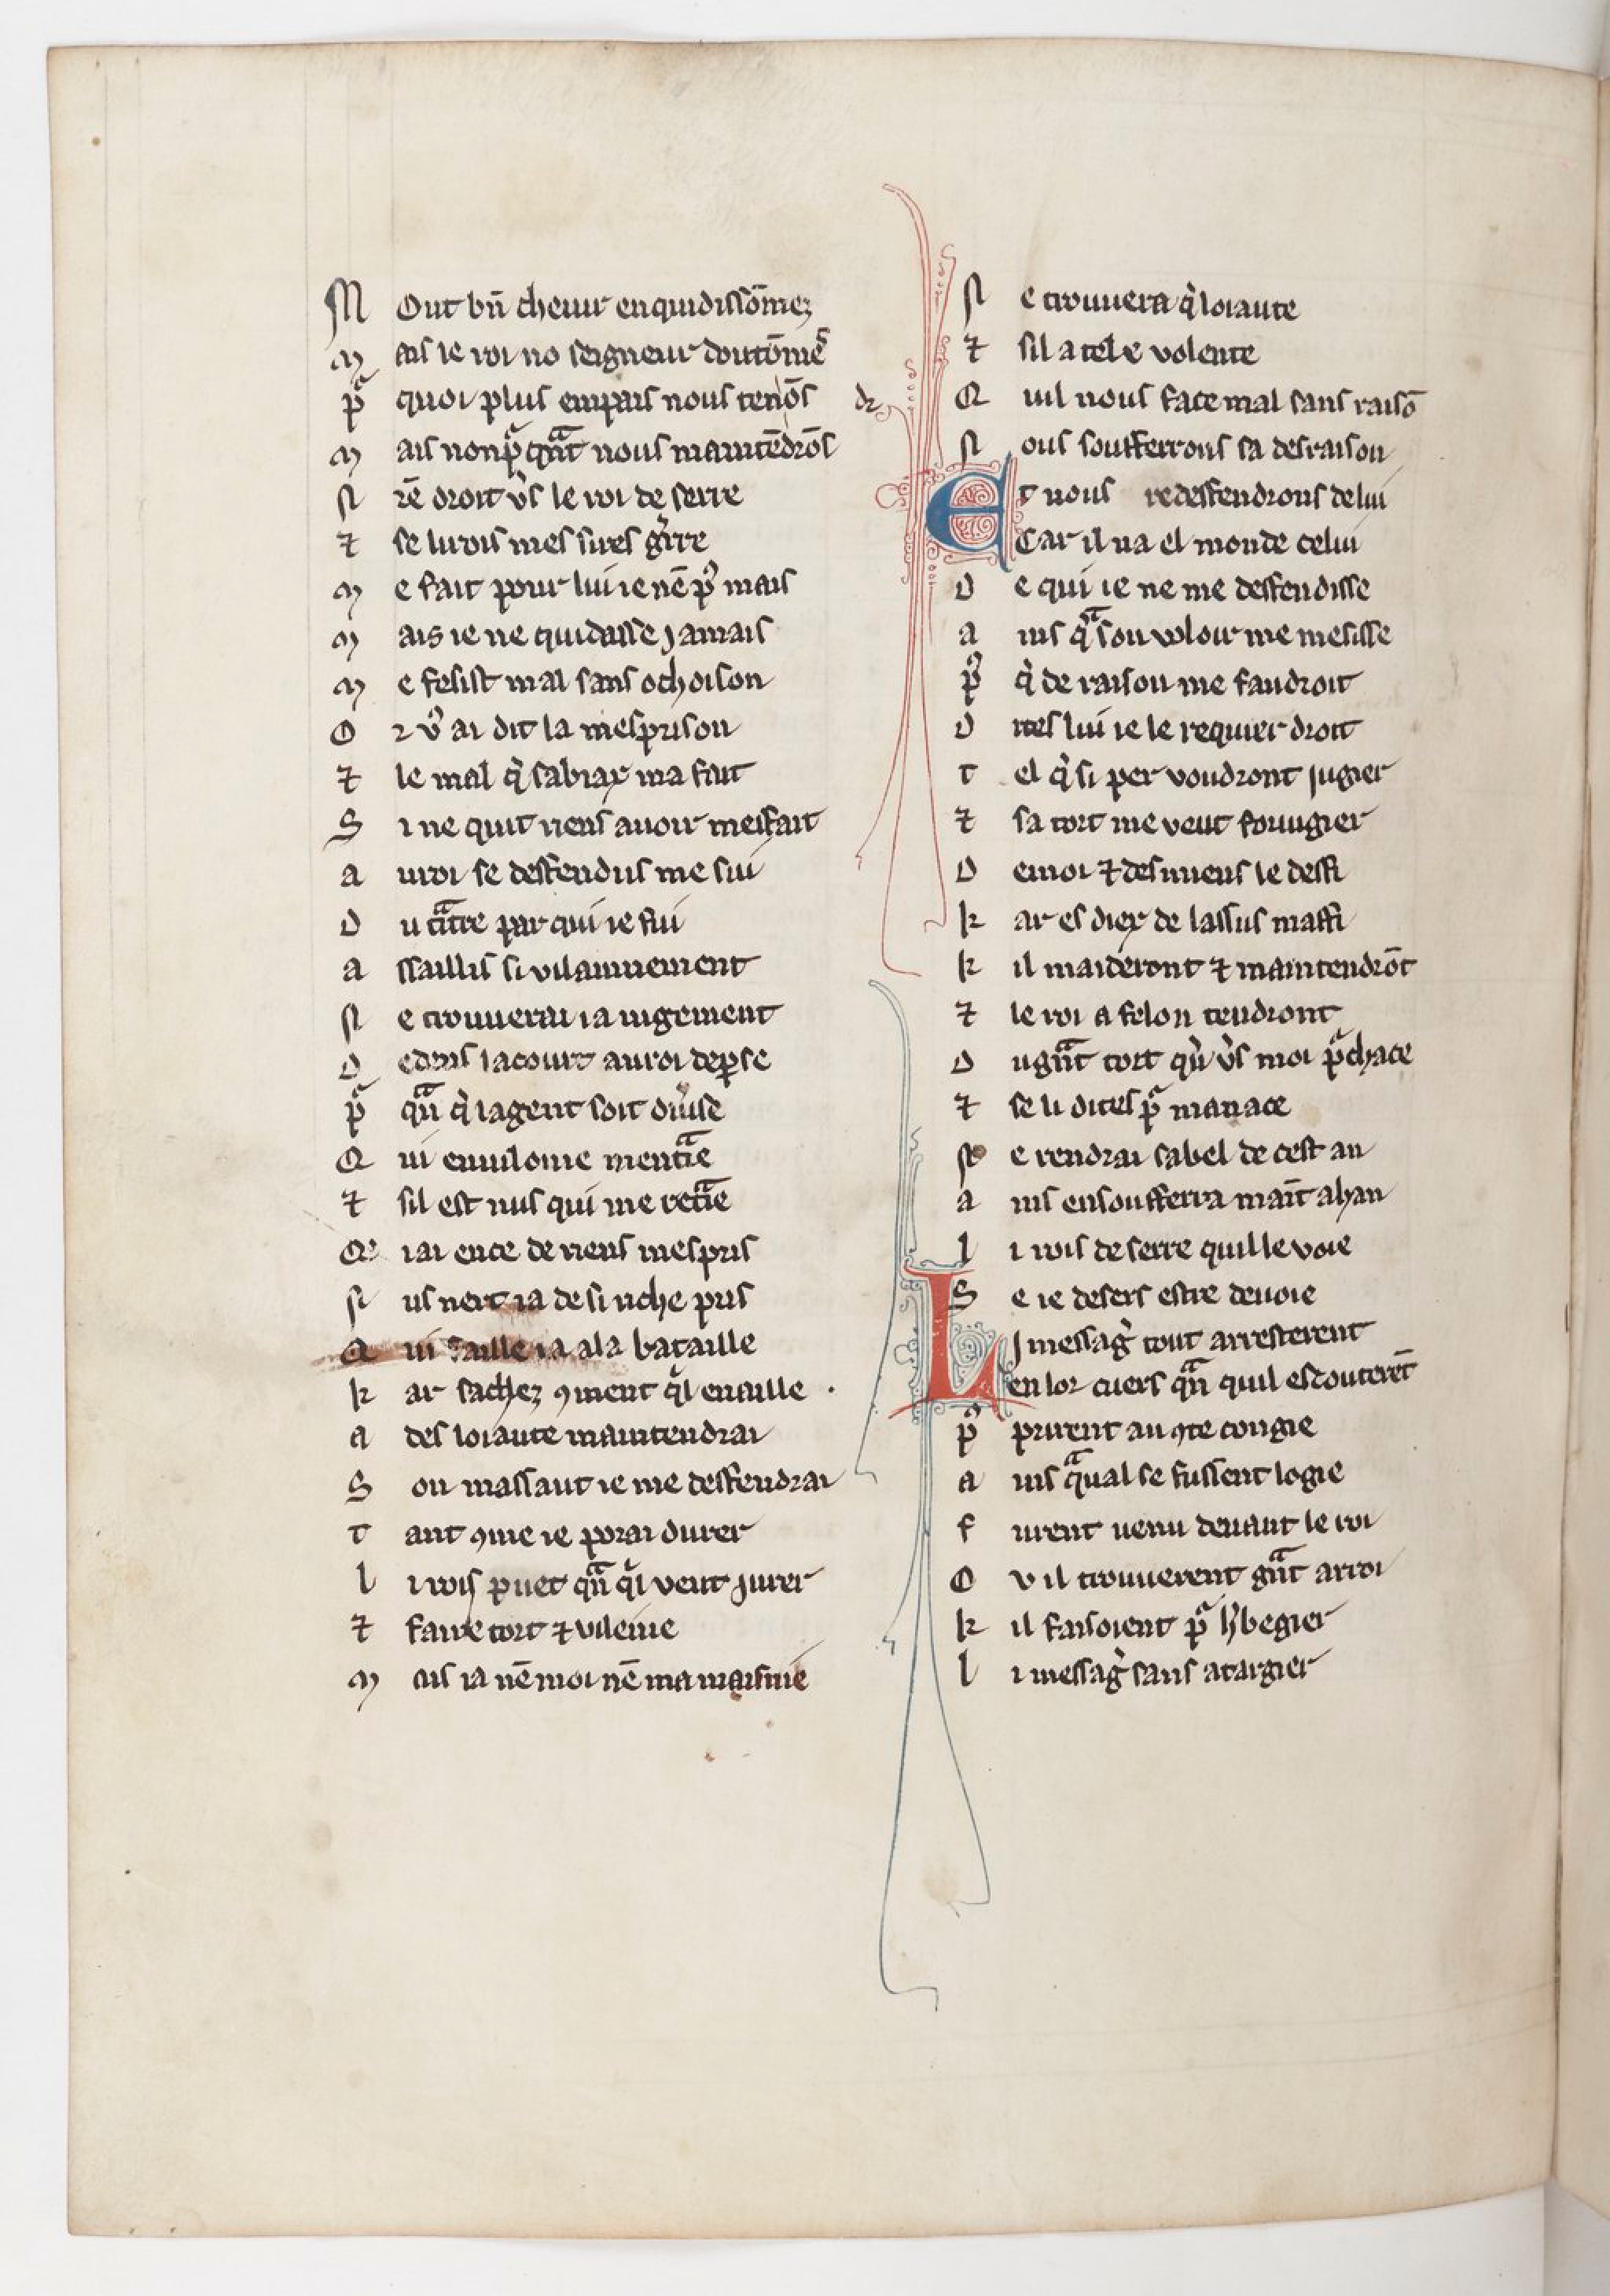 M Out bn̄ cheuir en quidissōmez
M ais le roi no seigneur doutōmeˢ
pᵃ quoi plus empais nous tenōs
M ais nonpᵃ qᵃnt nous maintēdrōs
N rē droit ṽs le roi de serre
⁊ se li rois mes sires gⁱrre
M e fait pour lui ie nē pˀ mais
M ais ie ne quidaisse jamais
M e fesist mal sans ochoison
O r vˀ ai dit la mesprison
⁊ le mal qⁱ sabrax ma fait
S i ne quit riens auoir meffait
A u roi se deffendus me sui
D u cᵃitre par qui ie fui
A ssaillis si vilainnement
N e trouuerai ia iugement
D edens la court au roi deꝑse
pᵃ qᵃn̄ qⁱ lagent soit diuⁱse
Q ui en vilonie mentᵃie
⁊ sil est nus qui me retᵃie
Q̃ iai ence de riens mespris
N us nert ia de si riche pris
Q ui faille ia a la bataille
K ar sachez ꝯment qⁱl en aille .
A des loiaute maintendrai
S on massaut ie me deffendrai
T ant ꝯme ie porai durer
L i rois puet qᵃn̄ qⁱl veut jurer
⁊ faire tort ⁊ vileinie
M ais ia nē moi nē ma maisnie
N e trouuera qⁱ loiaute
⁊ sil a tele volente
Q uil nous face mal sans raisō
N ous soufferrons sa desraison
Et nous redeffendrons de lui
Car il na el monde celui
D e qui ie ne me deffendisse
A ins qᵃ son voloir me mesisse
pˀ qⁱ de raison me faudroit
D ites lui ie le requier droit
T el qⁱ si per voudront jugier
⁊ sa tort me veut foriugier
D e moi ⁊ des miens le deffi
K ar es diex de lassus maffi
K il maideront ⁊ maintendrōt
⁊ le roi a felon tendront
D u gᵃnt tort quⁱ ṽs moi pᵃchace
⁊ se li dites pᵃ manace
N e rendrai sabel de cest an
A ins en soufferra maīt ahan
L i rois de serre quil le voie
S e ie desers estre deuoie
LI messagⁱ tout arresterent
en lor cuers qᵃn̄ quil escouterēt
pˀ prirent au ꝯte congie
A ins qᵃual se fussent logie
F urent uenu deuant le roi
O v il trouuerent gᵃnt arroi
K il faisoient pᵃ hˀbegier
L i messagⁱ sans atargier